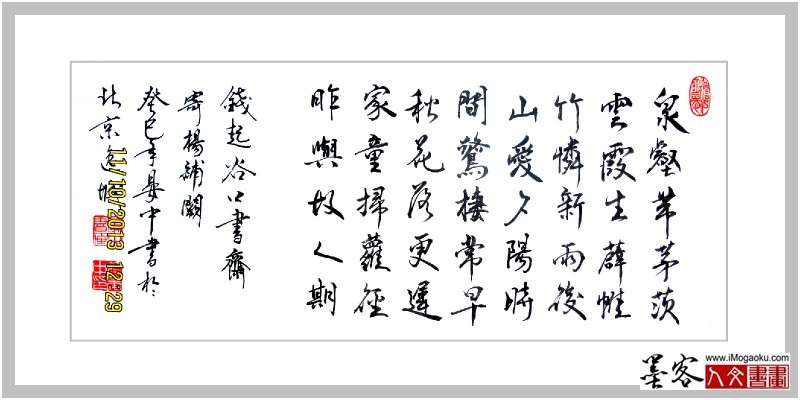 泉壑帶茅茨
雲霞生薜帷
竹憐新雨後
山愛夕陽時
閒鷺棲常早
秋花落更遲
家童掃蘿徑
昨與故人期
錢起谷口書齋
寄楊補闕
癸巳年晏中書於
北京
11/10/2013 12:29
www.iMogaoku.com
墨客人文書畫